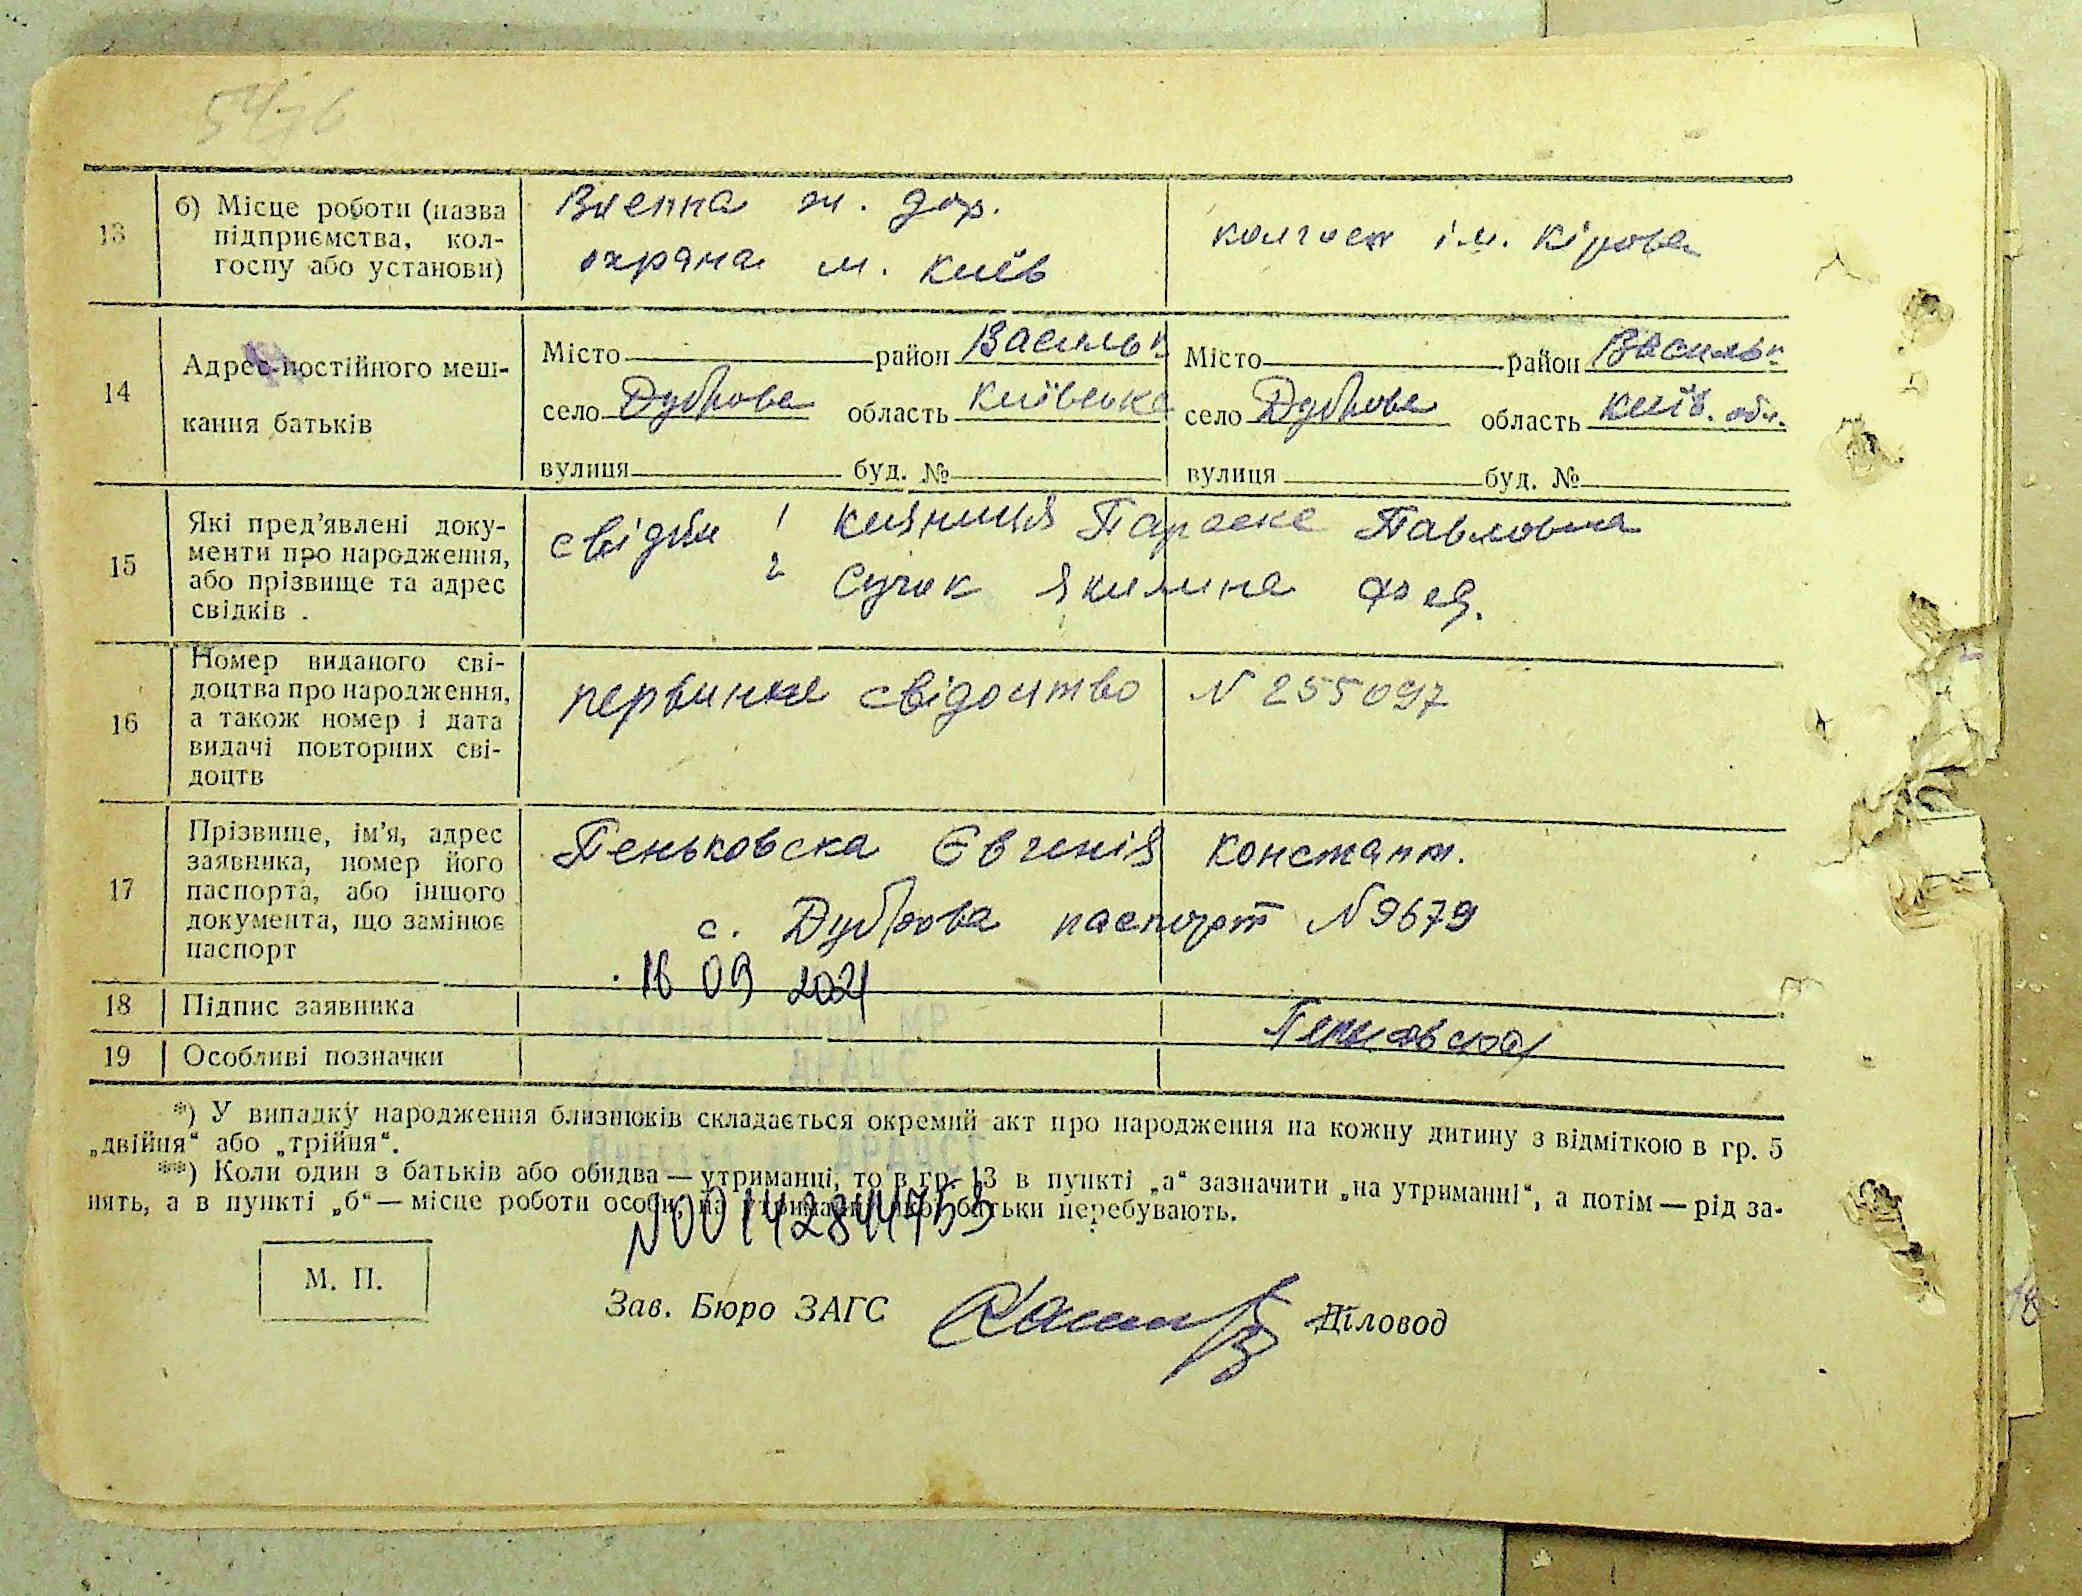 13 б) Місце роботи (назва підприємства, колгоспу або установи)
Воєнна ж. дор.
охрана м. Київ
колгосп ім. Кірова
14 Адрес постійного мешкання батьків
Місто район Васильк.
село Дуброва область Київська
вулиця буд. №
Місто район Васильк
село Дуброва область Київ. обл.
вулиця буд. №
15 Які пред’явлені документи про народження, або прізвище та адрес свідків .
свідки 1 Княниця Параска Павловна
2 Сучок Якилина Фед.
16 Номер виданого свідоцтва про народження, а також номер і дата видачі повторних свідоцтв
первинне свідоцтво N 255097
17 Прізвище, ім’я, адрес заявника, номер його паспорта, або іншого документа, що замінює паспорт
Пеньковска Євгенія Констант.
с. Дуброва паспорт N 9679
16 09 2021
18 Підпис заявника
Пеньковская
19 Особливі позначки
*) У випадку народження близнюків складається окремий акт про народження на кожну дитину з відміткою в гр. 5
„двійня“ або „трійня“.
**) Коли один з батьків або обидва — утриманці, то в гр. 13 в пункті „а“ зазначити „на утриманні“, а потім — рід за-
нять, а в пункті „б“ — місце роботи особи, на утриманні якої батьки перебувають.
М. П.
Зав. Бюро ЗАГС
Діловод